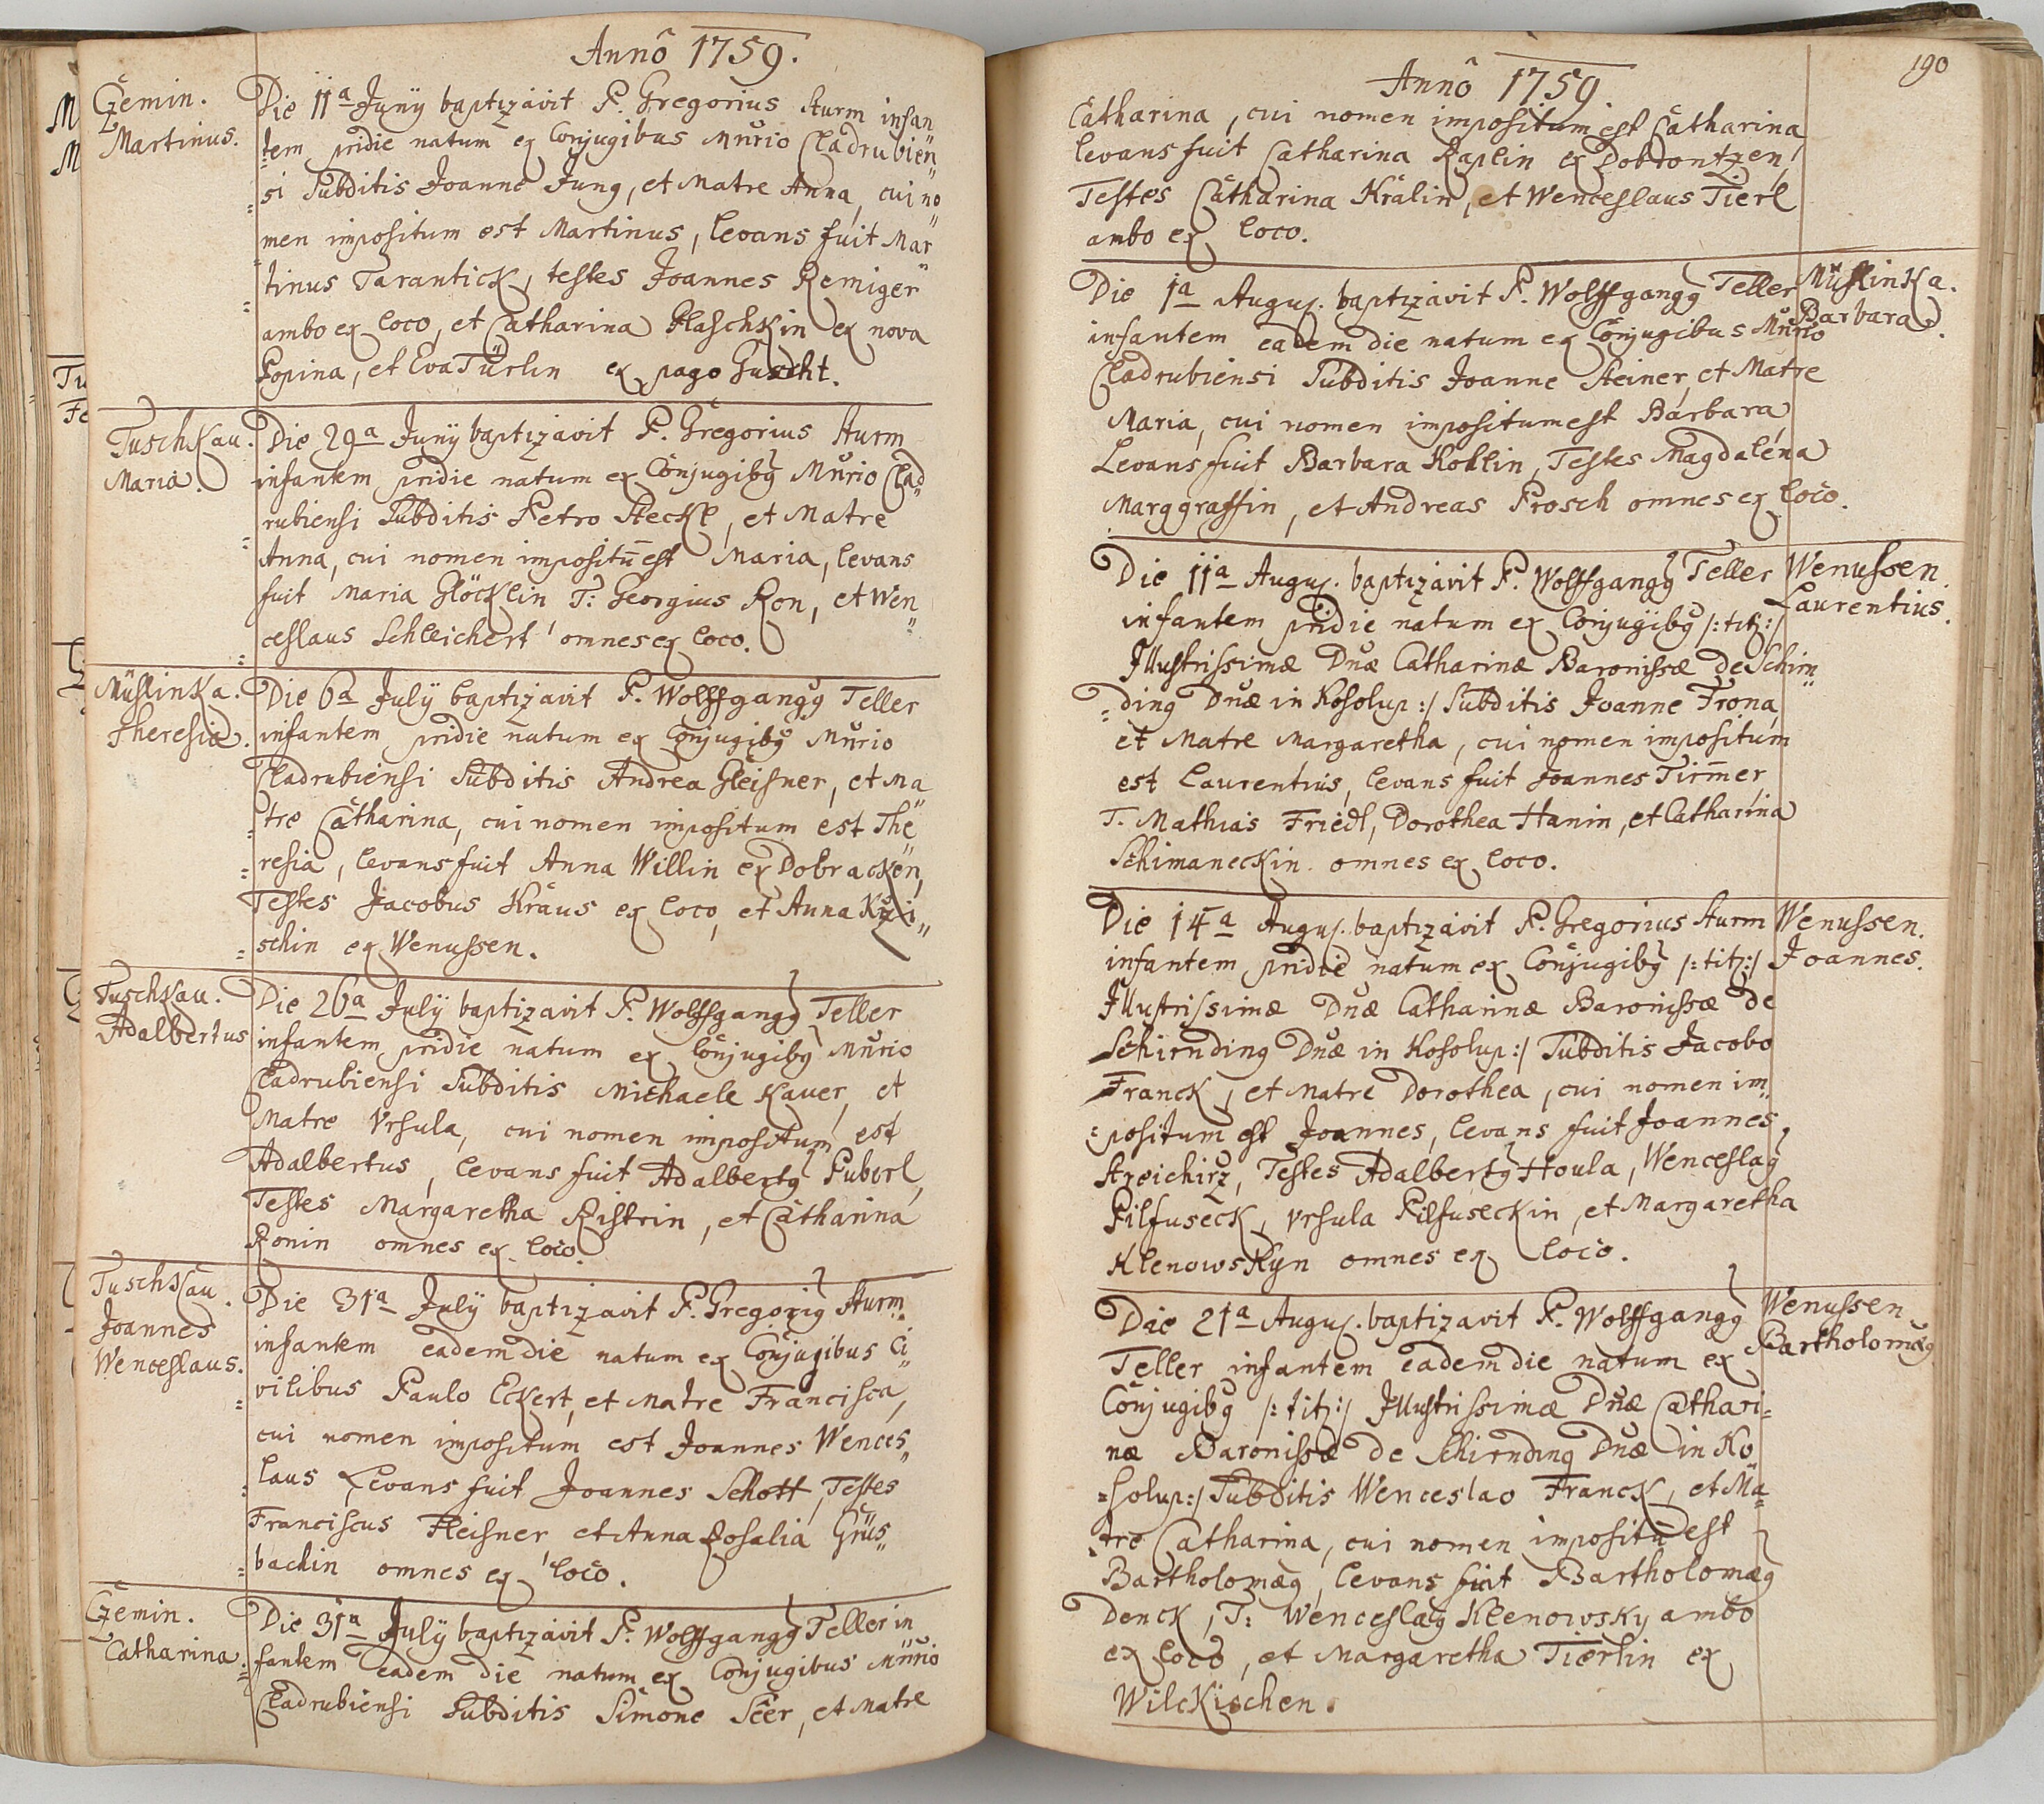 Annô 1759.
Czemin.
Martinus.
Die 11a Junÿ baptizavit P. Gregorius Sturm infan
tem pridie natum ex Conjugibus Mnrio Cladrubien
si Subditis Joanne Jung, et Matre Anna, cui no
men impositum est Martinus, levans fuit Mar
tinus Tarantick, testes Joannes Remiger
ambo ex loco, et Catharina Plaschkin ex nova
Popina, et Eva Türlin ex pago Guscht.
Tuschkau.
Maria.
Die 29a Junÿ baptizavit P. Gregorius Sturm
infantem pridie natum ex Conjugibq Mnrio Clad
rubiensi Subditis Petro Steckl, et Matre
Anna, cui nomen impositū est Maria, levans
fuit Maria Glöcklin T: Georgius Ron, et Wen
ceslaus Schleichert omnes ex loco.
Müslinka.
Theresia.
Die 6a Julÿ baptizavit P. Wolffgangq Teller
infantem pridie natum ex Conjugibq Mnrio
Cladrubiensi Subditis Andrea Gleisner, et Ma
tre Catharina, cui nomen impositum est The
resia, levans fuit Anna Willin ex Dobracken,
Testes Jacobus Kraus ex loco, et Anna
schin ex Wenussen.
Tuschkau.
Adalbertus
Die 26a Julÿ baptizavit P. Wolffgangq Teller
infantem pridie natum ex Conjugibq Mnrio
Cladrubiensi Subditis Michaele Kauer, et
Matre Ursula, cui nomen impositum est
Adalbertus, levans fuit Adalbertq Puberl,
Testes Margaretha Ristrin, et Catharina
Ronin omnes ex loco.
Tuschkau.
Joannes
Wenceslaus.
Die 31a Julÿ baptizavit P. Gregoriq Sturm
infantem eadem die natum ex Conjugibus Ci
vilibus Paulo Eckert, et Matre Francisca,
cui nomen impositum est Joannes Wences
laus Levans fuit Joannes Schott, Testes
Franciscus Fleisner et Anna Rosalia Grüs
bachin omnes ex loco.
Czemin.
Catharina.
Die 31a Julÿ baptizavit P. Wolffgangq Teller in
fantem eadem die natum ex Conjugibus Mnrio
Cladrubiensi Subditis Simone Seer, et Matre
190
Annô 1759
Catharina, cui nomen impositum est Catharina,
levans fuit Catharina Raplin ex Dobrontzen,
Testes Catharina Kralin, et Wenceslaus Tierl
ambo ex loco.
Die 1a Augus. baptizavit P. Wolffgangq Teller
infantem eadem die natum ex Conjugibus Mnrio
Cladrubiensi Subditis Joanne Steiner, et Matre
Maria, cui nomen impositum est Barbara,
Levans fuit Barbara Koblin, Testes Magdalena
Marggraffin, et Andreas Prosch omnes ex loco.
Müslinka.
Barbara.
Die 11a Augus. baptizavit P. Wolffgangq Teller
infantem pridie natum ex Conjugibq /:titz:/
Illustrissimæ Dnæ Catharinæ Baronissæ de Schirn
ding Dnæ in Kosolup:/ Subditis Joanne Trona,
et Matre Margaretha, cui nomen impositum
est Laurentius, levans fuit Joannes Tirm̄er,
T. Mathias Friedl, Dorothea Hanin, et Catharina
Schimaneckin omnes ex loco.
Wenussen.
Laurentius.
Die 14a Augus. baptizavit P. Gregorius Sturm
infantem pridie natum ex Conjugibq /:titz:/
Illustrissimæ Dnæ Catharinæ Baronissæ de
Schirnding Dnæ in Kosolup:/ Subditis Jacobo
Franck, et Matre Dorothea, cui nomen im
positum est Joannes, levans fuit Joannes
Streichirz, Testes Adalbertq Houla, Wenceslaq
Pilfuseck, Ursula Pilfuseckin, et Margaretha
Klenowskyn omnes ex loco.
Wenussen.
Joannes.
Die 21a Augus. baptizavit P. Wolffgangq
Teller infantem eadem die natum ex
Conjugibq /:titz:/ Illustrissimæ Dnæ Cathari
næ Baronissæ de Schirnding Dnæ in Ko
solup:/ Subditis Wenceslao Franck, et Ma
tre Catharina, cui nomen impositū est
Bartholomæq, levans fuit Bartholomæq
Denck, T: Wenceslaq Klenowsky ambo
ex loco, et Margaretha Tierlin ex
Wilckischen.
Wenussen
Bartholomæq